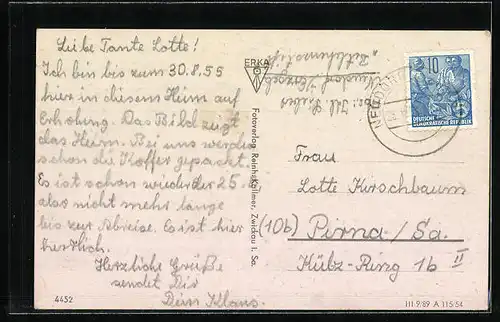 Liebe Tante Lotte!
Ich bin bis zum 30.8.55
hier in diesem Heim auf
Erholung. Das Bild zeigt
das Heim. Bei uns werden
schon die Koffer gepackt.
Es ist schon wieder der 25.8.
also nicht mehr lange
bis zur Abreise. Es ist hier
herrlich.
Herzliche Grüße
sendet Dir
Dein Klaus.
4452
ERKA
Fotoverlag Reinhold Kallmer, Zwickau i. Sa.
NEUDORF
10
DEUTSCHE
DEMOKRATISCHE REPUBLIK
Frau
Lotte Kirschbaum
(10b) Pirna/Sa.
Külz-Ring 1b II
III-9-89 A 115/54